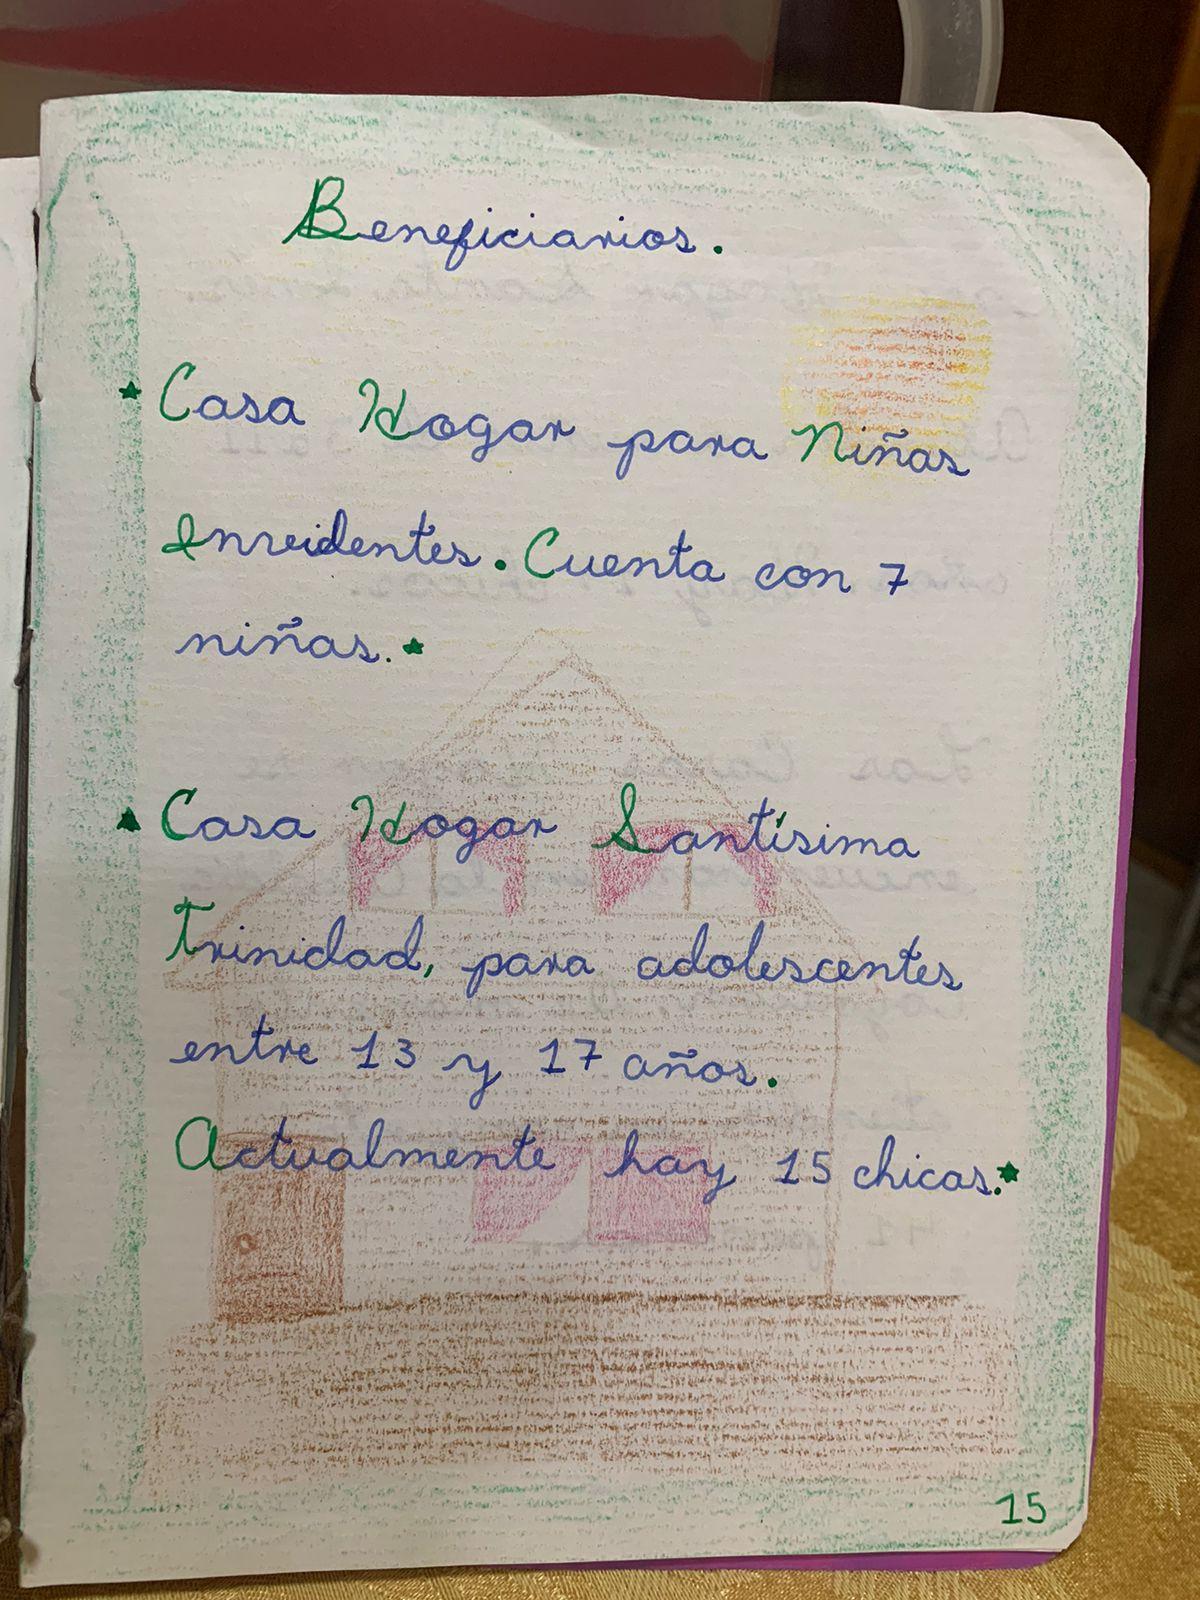 Beneficiarios.
Casa Hogar para Niñas
Invidentes. Cuenta con 7
niñas.
Casa Hogar Santísima
Trinidad, para adolescentes
entre 13 y 17 años.
Actualmente hay 15 chicas.
15